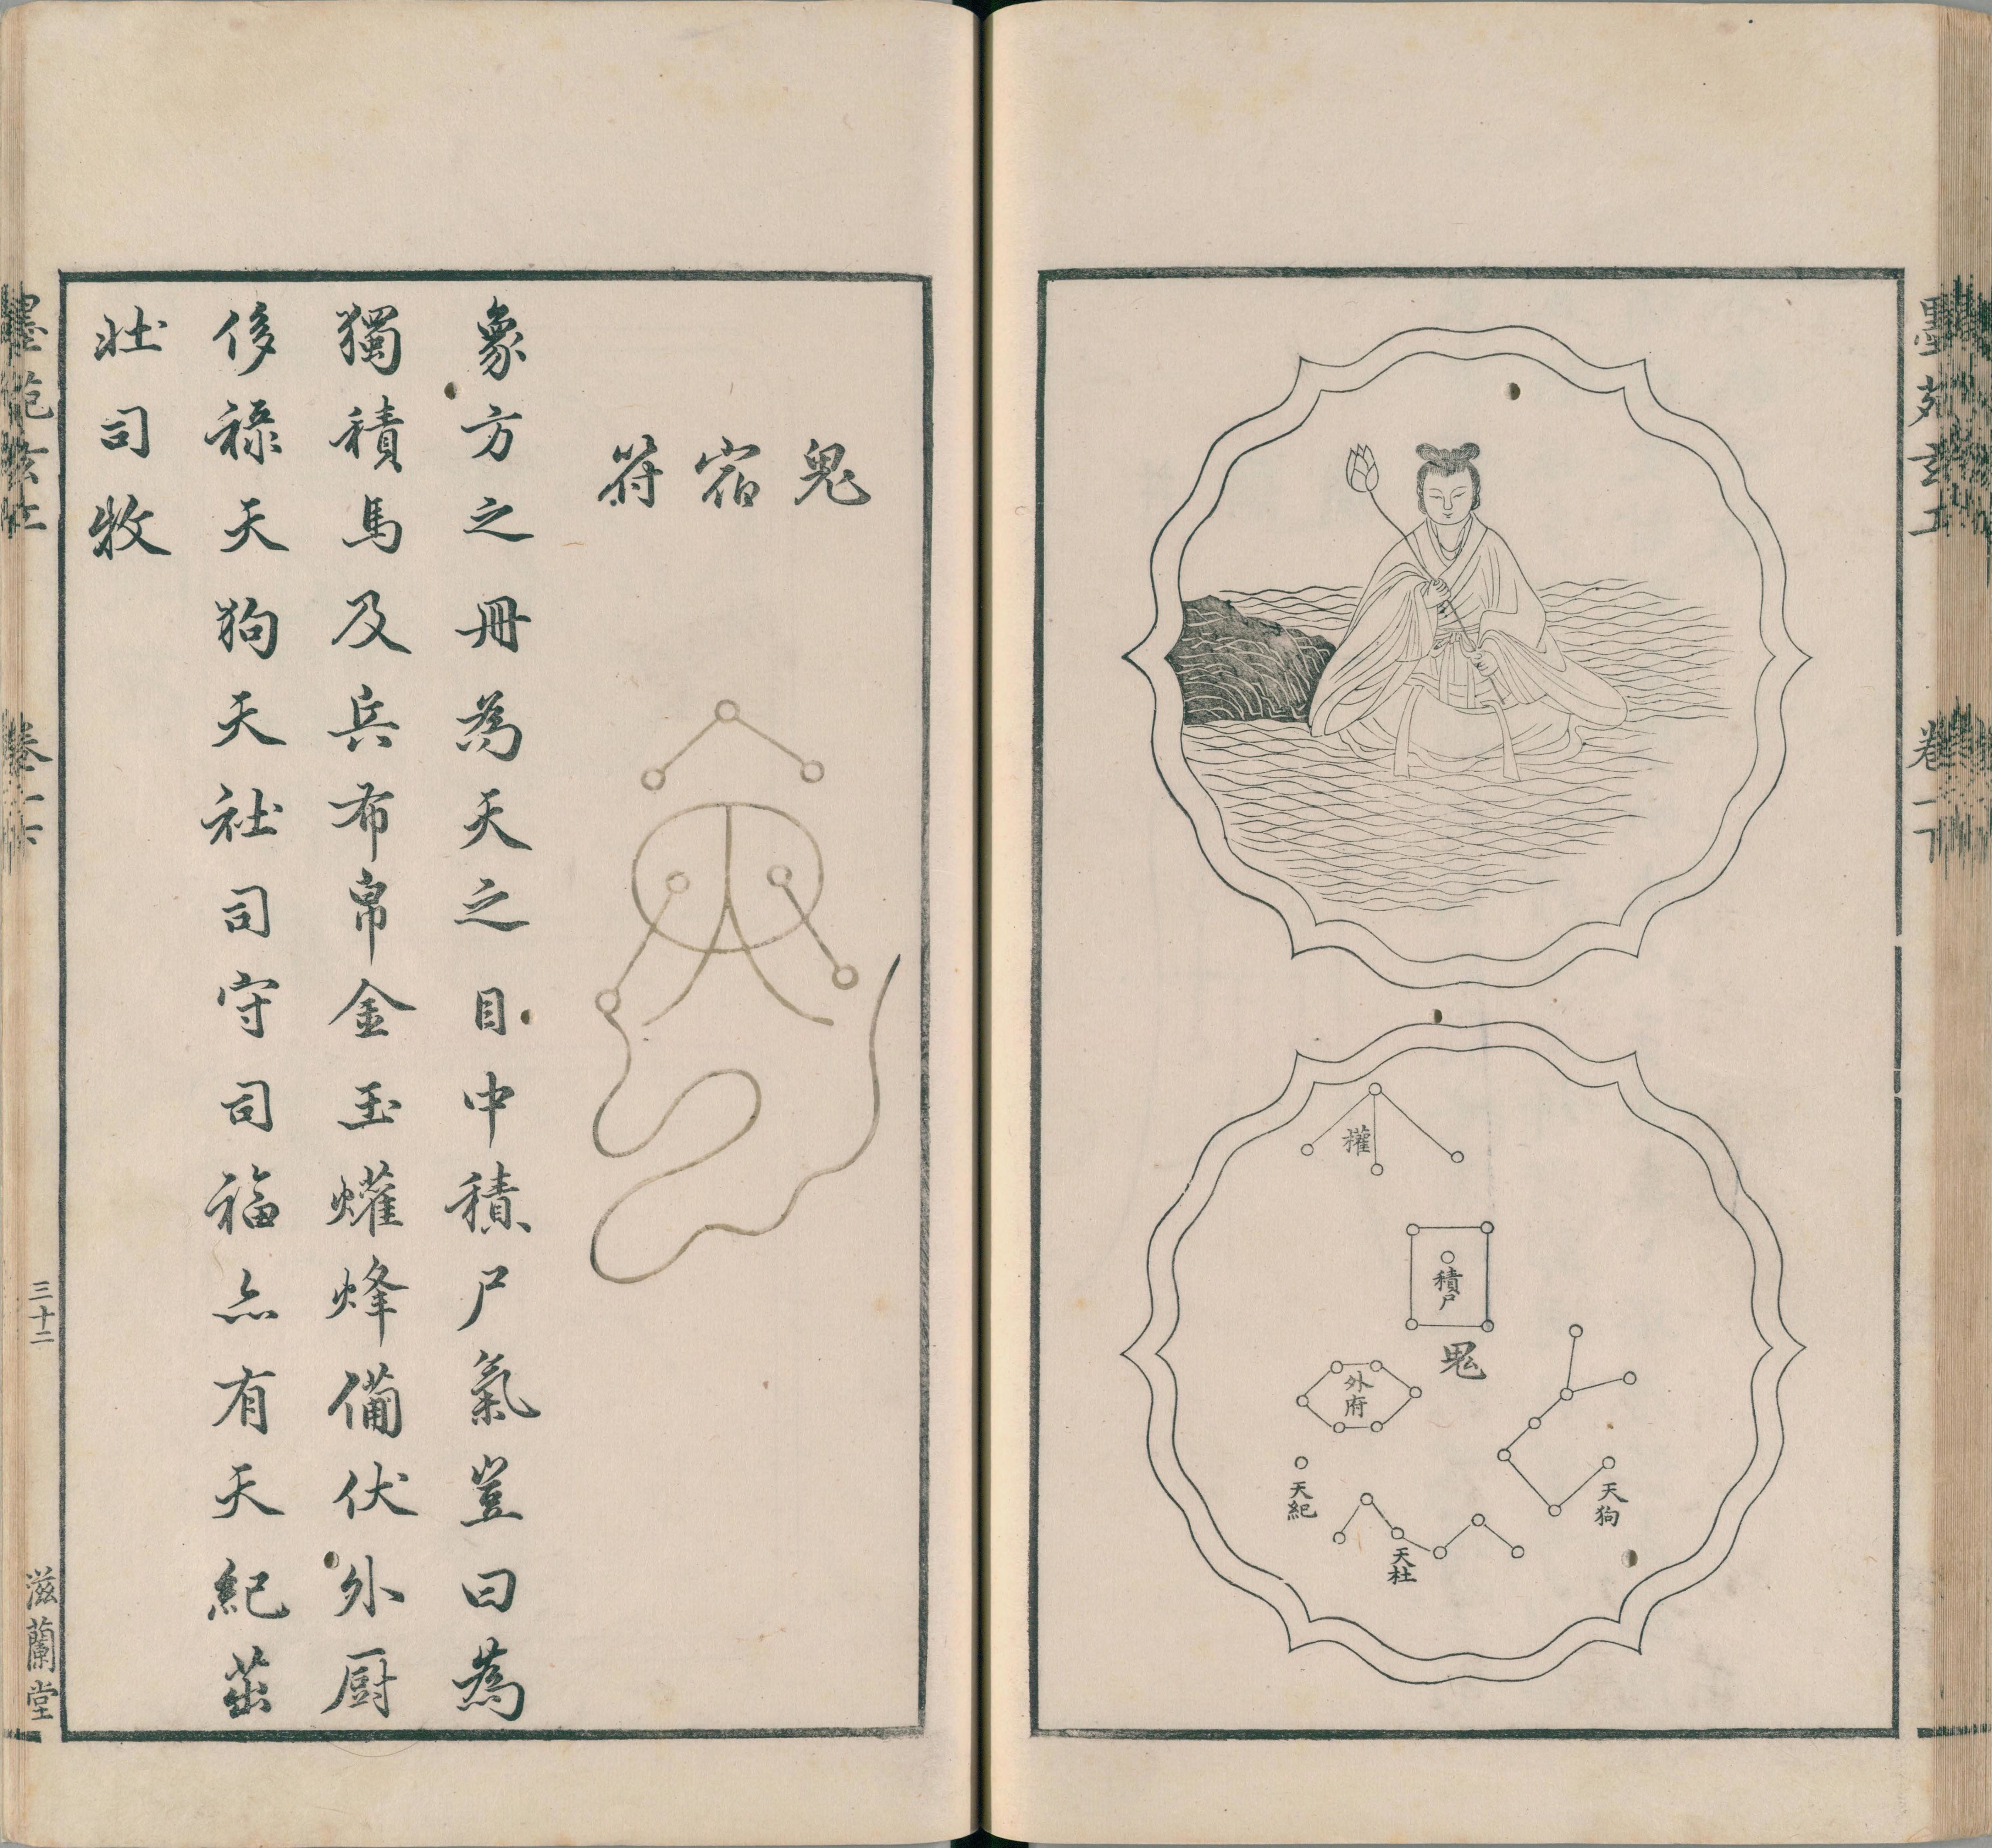 墨苑玄工
卷一下
權
積尸
鬼
外府
天狗
天紀
天社
鬼宿符
象方之冊為天之目中積尸氣豈曰為
獨積馬及兵布帛金玉爟烽備伏外厨
侈祿天狗天社司守司福亦有天紀茁
壯司牧
墨苑玄工
卷一下
三十二
滋蘭堂